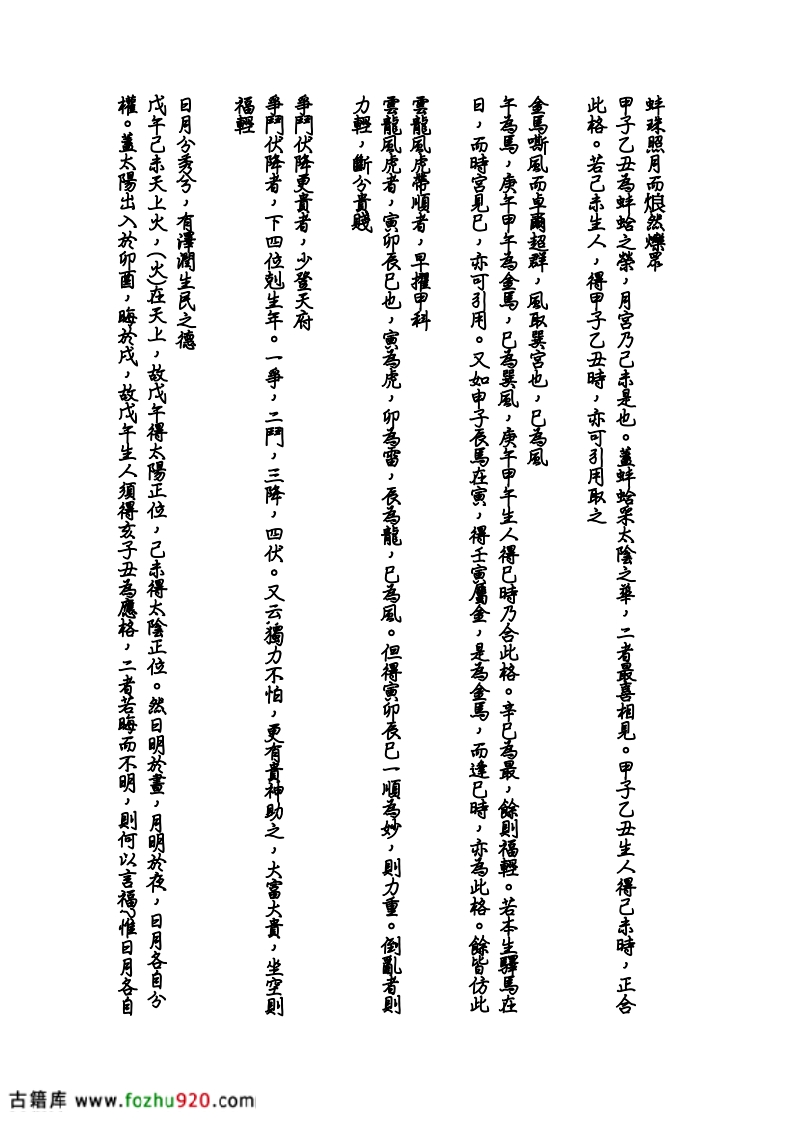 蚌珠照月而烺然爍眾
甲子乙丑為蚌蛤之榮，月宮乃己未是也。蓋蚌蛤采太陰之華，二者最喜相見。甲子乙丑生人得己未時，正合
此格。若己未生人，得甲子乙丑時，亦可引用取之
金馬嘶風而卓爾超群，風取巽宮也，巳為風
午為馬，庚午甲午為金馬，巳為巽風，庚午甲午生人得巳時乃合此格。辛巳為最，餘則福輕。若本生驛馬在
日，而時宮見巳，亦可引用。又如申子辰馬在寅，得壬寅屬金，是為金馬，而逢巳時，亦為此格。餘皆仿此
雲龍風虎帶順者，早擢甲科
雲龍風虎者，寅卯辰巳也，寅為虎，卯為雷，辰為龍，巳為風。但得寅卯辰巳一順為妙，則力重。倒亂者則
力輕，斷分貴賤
爭鬥伏降更貴者，少登天府
爭鬥伏降者，下四位剋生年。一爭，二鬥，三降，四伏。又云:獨力不怕，更有貴神助之，大富大貴，坐空則
福輕
日月分秀兮，有澤潤生民之德
戊午己未天上火，(火)在天上，故戊午得太陽正位，己未得太陰正位。然日明於晝，月明於夜，日月各自分
權。蓋太陽出入於卯酉，晦於戌，故戊午生人須得亥子丑為應格，二者若晦而不明，則何以言福?惟日月各自
古籍库 www.fozhu920.com